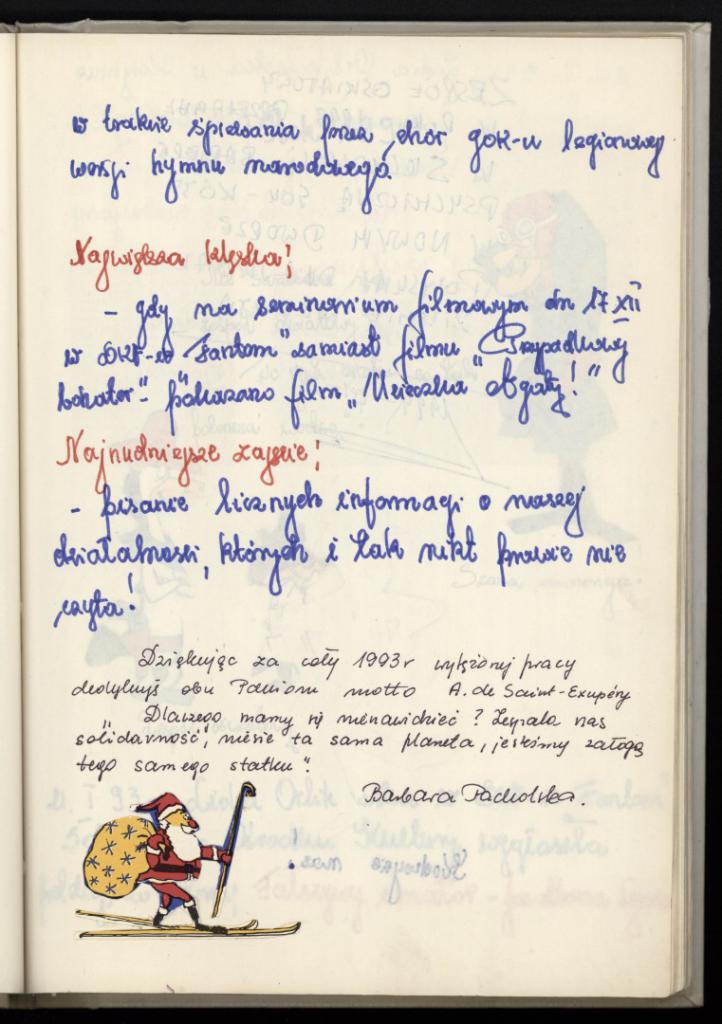 w trakcie śpiewania przez chór GOK-u legionowej
wersji hymnu narodowego.
Największa klęska!
- gdy na seminarium filmowym dn 17 XII
w DKF-ie "Fantom" zamiast filmu "Przypadkowy
bohater" - pokazano film "Ucieczka"
Najnudniejsze zajęcie!
- pisanie licznych informacji o naszej
działalności, których i tak nikt prawie nie
czyta!
Dziękując za cały 1993r wytężonej pracy
dedykuję obu Paniom motto A. de Saint-Exupéry
"Dlaczego mamy się nienawidzieć? Zespala nas
solidarność, niesie ta sama planeta, jesteśmy załogą
tego samego statku".
Barbara Pacholska.